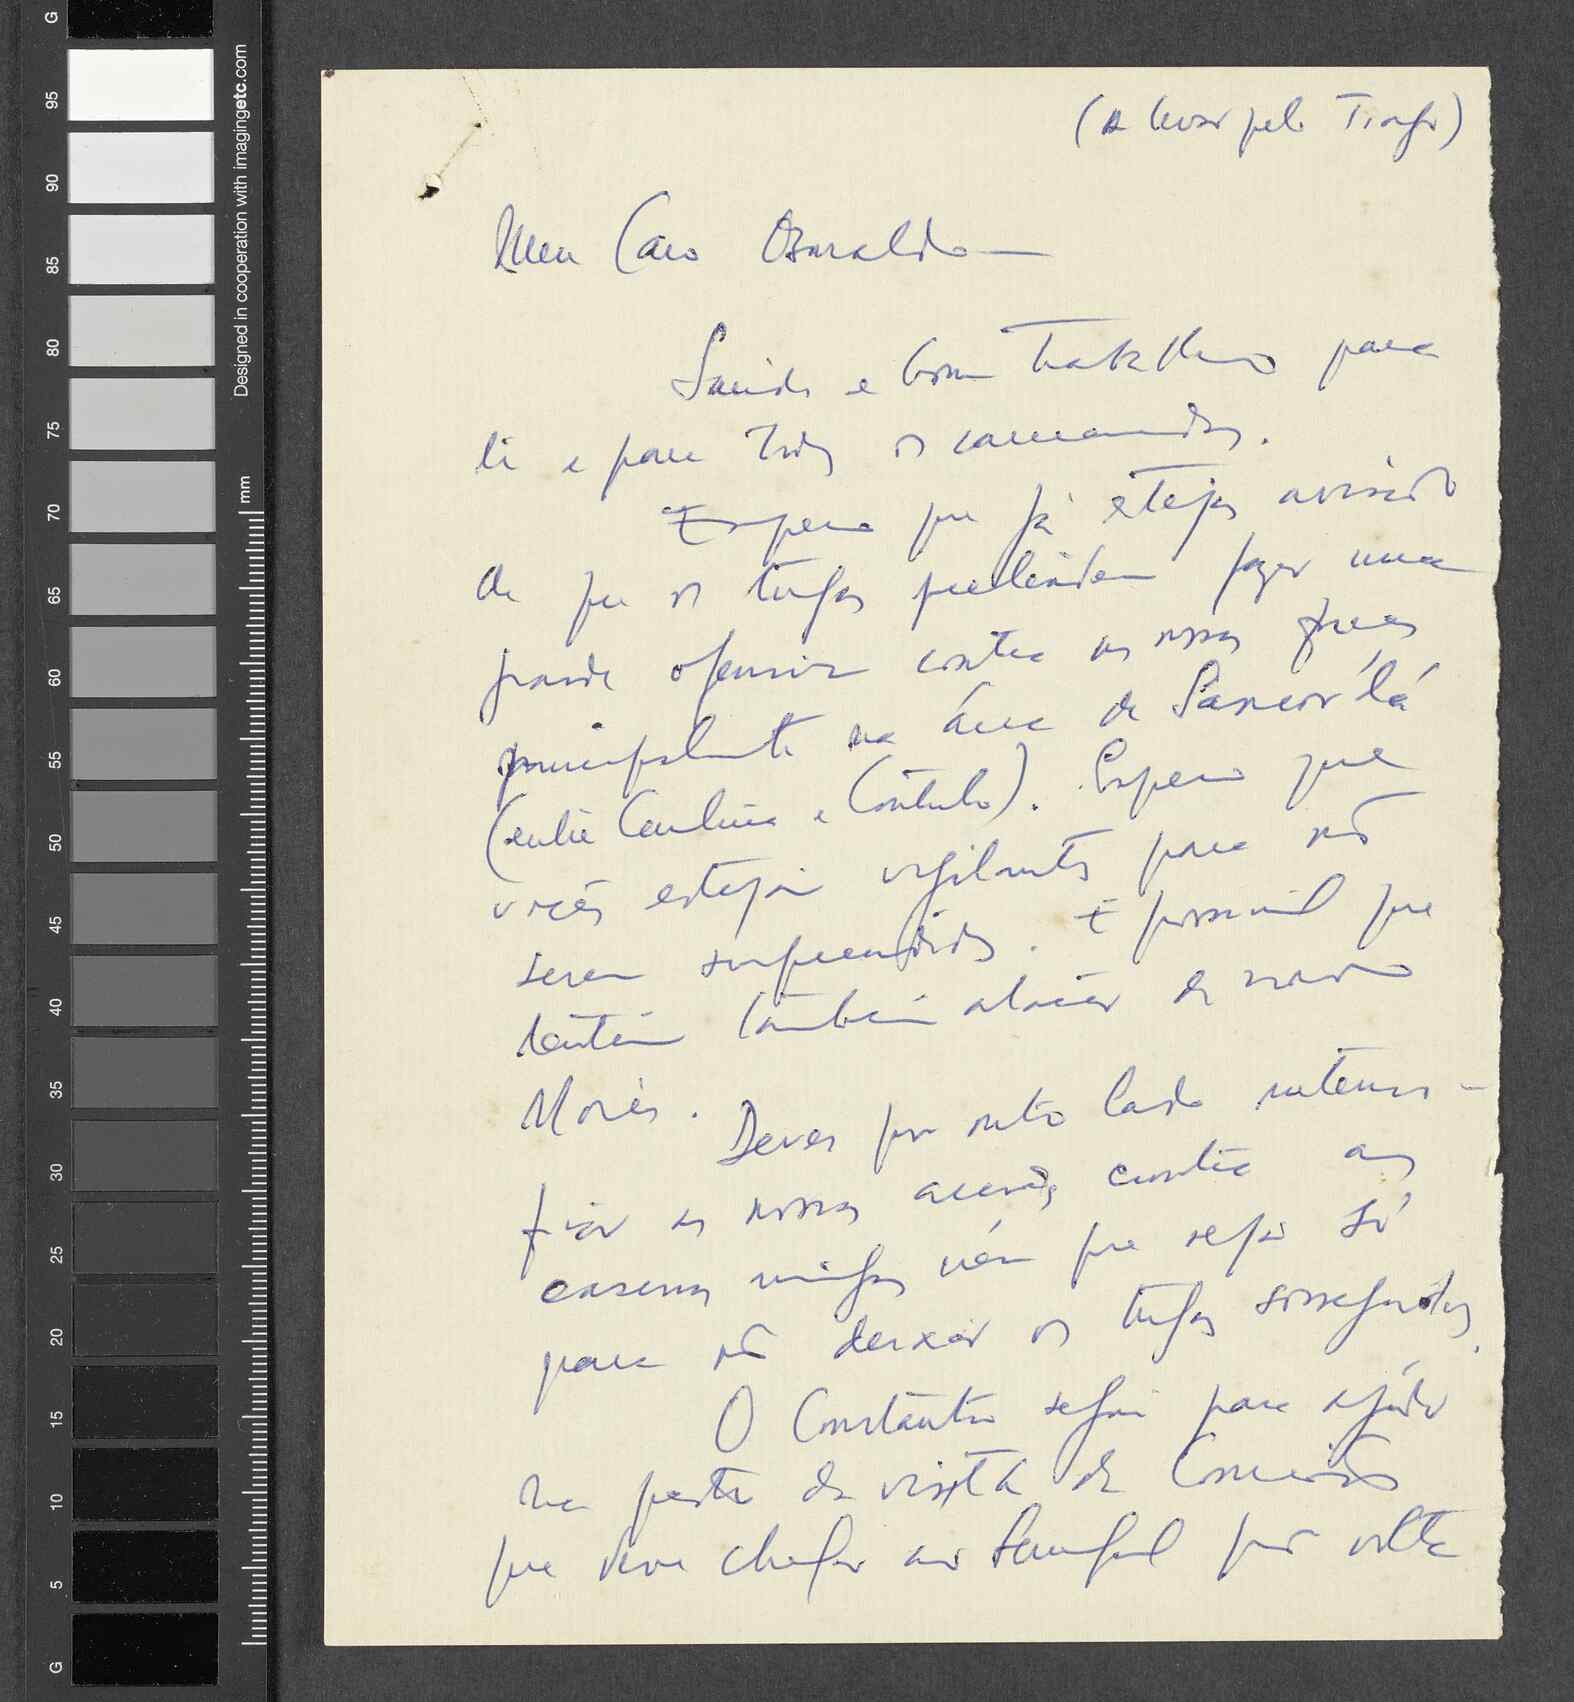 (a levar pelo Tiago)
Meu Caro Osvaldo
Saúde e bom trabalho para
ti e para todos os camaradas.
Espero que já estejas avisado
de que os tugas pretendem fazer uma
grande ofensiva contra as nossas forças
principalmente na área de Sancorlá
(entre Cambuia e Contubo). Espero que
vocês estejam vigilantes para não
serem surpreendidos. É possível que
tentem também atacar de novo
Morés. Deves por outo lado intensi-
ficar as nossas acções contra as
casernas inimigas nem que seja só
para não deixar os tugas sossegados.
O Constantino segue para ajudar
na parte da visita da Comissão
que deve chegar ao Senegal por volta
G
95
90
85
80
75
70
65
60
55
50
45
40
35
30
25
20
15
10
5
G
Designed in cooperation with imagingetc.com
mm